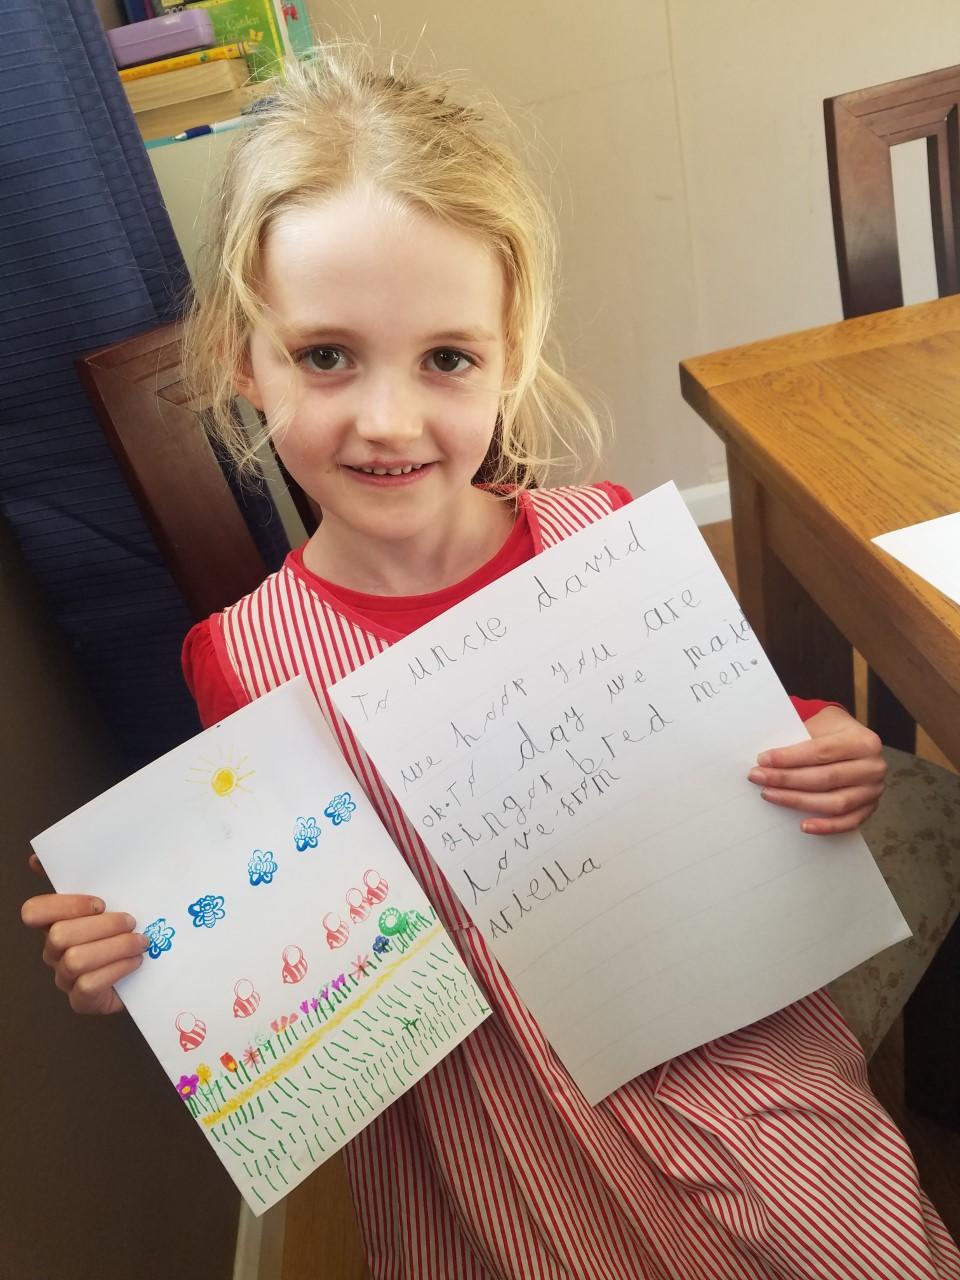 Garden
To uncle david
we hoop you are
ok. To day we maid
gingor bred men.
love from
Ariella